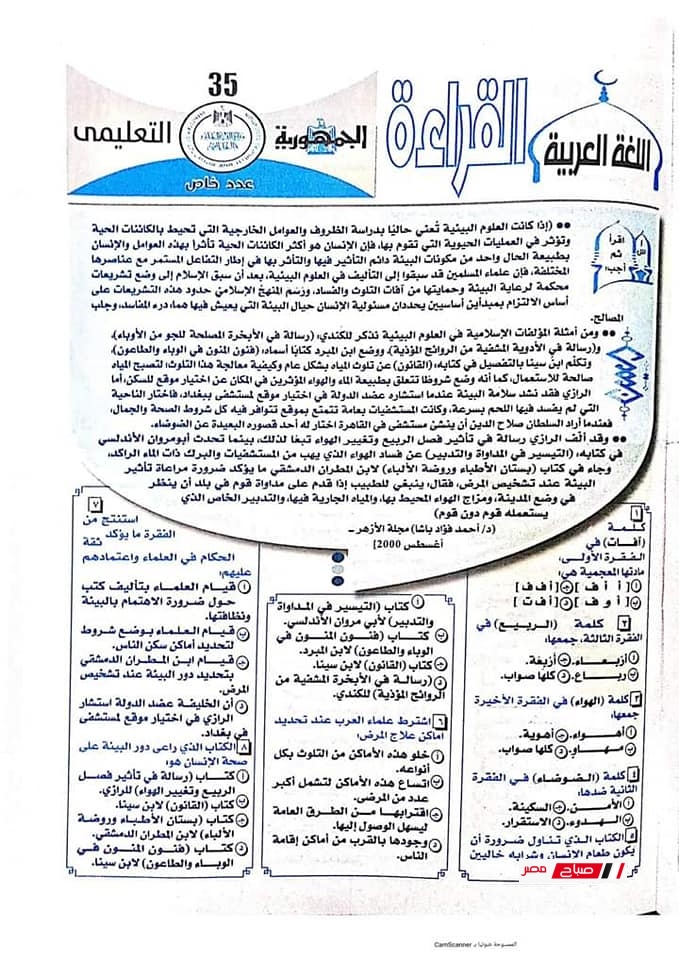 اللغة العربية
القراءة
35
الجمهورية
التعليمى
عدد خاص
س١
اقرأ
ثم
أجب:
●● (إذا كانت العلوم البيئية تُعني حاليًا بدراسة الظروف والعوامل الخارجية التي تحيط بالكائنات الحية
وتؤثر في العمليات الحيوية التي تقوم بها، فإن الإنسان هو أكثر الكائنات الحية تأثرا بهذه العوامل والإنسان
بطبيعة الحال واحد من مكونات البيئة دائم التأثير فيها والتأثر بها في إطار التفاعل المستمر مع عناصرها
المختلفة، فإن علماء المسلمين قد سبقوا إلى التأليف في العلوم البيئية، بعد أن سبق الإسلام إلى وضع تشريعات
محكمة لرعاية البيئة وحمايتها من آفات التلوث والفساد، ورَسَم المنهجُ الإسلاميّ حدود هذه التشريعات على
أساس الالتزام بمبدأين أساسيين يحددان مسئولية الإنسان حيال البيئة التي يعيش فيها هما، درء المفاسد، وجلب
المصالح.
●● ومن أمثلة المؤلفات الإسلامية في العلوم البيئية نذكر للكندي، (رسالة في الأبخرة المصلحة للجو من الأوباء)،
و(رسالة في الأدوية المشفية من الروائح المؤذية)، ووضع ابن المبرد كتابًا أسماه: (فنون المنون في الوباء والطاعون)،
وتكلّم ابن سينا بالتفصيل في كتابه، (القانون) عن تلوث المياه بشكل عام وكيفية معالجة هذا التلوث، لتصبح المياه
صالحة للاستعمال، كما أنه وضع شروطا تتعلق بطبيعة الماء والهواء المؤثرين في المكان عن اختيار موقع للسكن، أما
الرازي فقد نشد سلامة البيئة عندما استشاره عضد الدولة في اختيار موقع لمستشفى ببغداد، فاختار الناحية
التي لم يفسد فيها اللحم بسرعة، وكانت المستشفيات بعامة تتمتع بموقع تتوافر فيه كل شروط الصحة والجمال،
فعندما أراد السلطان صلاح الدين أن ينشئ مستشفى في القاهرة اختار له أحد قصوره البعيدة عن الضوضاء.
●● وقد ألف الرازي رسالة في تأثير فصل الربيع وتغيير الهواء تبعًا لذلك، بينما تحدث أبومروان الأندلسي
في كتابه، (التيسير في المداواة والتدبير) عن فساد الهواء الذي يهب من المستنقعات والبرك ذات الماء الراكد،
وجاء في كتاب (بستان الأطباء وروضة الألباء) لابن المطران الدمشقي ما يؤكد ضرورة مراعاة تأثير
البيئة عند تشخيص المرض، فقال، ينبغي للطبيب إذا قدم على مداواة قوم في بلد أن ينظر
في وضع المدينة، ومزاج الهواء المحيط بها، والمياه الجارية فيها، والتدبير الخاص الذي
يستعمله قوم دون قوم)
(د/ أحمد فؤاد باشا) مجلة الأزهر ـ
أغسطس 2000]
١
كلمة
(آفات) في
الفقرة الأولى،
مادتها المعجمية هي:
أ [أ أ ف] ج [أ ف ف]
ب [أ و ف] د [أ ف ت]
٢ كلمة (الربيع) في
الفقرة الثالثة، جمعها،
أ أربعاء. ج أربعة.
ب رباع. د كلها صواب.
٣ كلمة (الهواء) في الفقرة الأخيرة
جمعها،
أ أهواء. ج أهوية.
ب مهاو. د كلها صواب.
٤ كلمة (الضوضاء) في الفقرة
الثانية ضدها،
أ الأمن. ج السكينة.
ب الهدوء. د الاستقرار.
٥ الكتاب الذي تناول ضرورة أن
يكون طعام الإنسان وشرابه خاليين
أ كتاب (التيسير في المداواة
والتدبير) لأبي مروان الأندلسي.
ب كتاب (فنون المنون في
الوباء والطاعون) لابن المبرد.
ج كتاب (القانون) لابن سينا.
د (رسالة في الأبخرة المشفية من
الروائح المؤذية) للكندي.
٦ اشترط علماء العرب عند تحديد
أماكن علاج المرض،
أ خلو هذه الأماكن من التلوث بكل
أنواعه.
ب اتساع هذه الأماكن لتشمل أكبر
عدد من المرضى.
ج اقترابها من الطرق العامة
ليسهل الوصول إليها.
د وجودها بالقرب من أماكن إقامة
الناس.
٧
استنتج من
الفقرة ما يؤكد ثقة
الحكام في العلماء واعتمادهم
عليهم:
أ قيام العلماء بتأليف كتب
حول ضرورة الاهتمام بالبيئة
ونظافتها.
ب قيام العلماء بوضع شروط
لتحديد أماكن سكن الناس.
ج قيام ابن المطران الدمشقي
بتحديد دور البيئة عند تشخيص
المرض.
د أن الخليفة عضد الدولة استشار
الرازي في اختيار موقع لمستشفى
في بغداد.
٨ الكتاب الذي راعى دور البيئة على
صحة الإنسان هو:
أ كتاب (رسالة في تأثير فصل
الربيع وتغيير الهواء) للرازي.
ب كتاب (القانون) لابن سينا.
ج كتاب (بستان الأطباء وروضة
الألباء) لابن المطران الدمشقي.
د كتاب (فنون المنون في
الوباء والطاعون) لابن سينا.
صباح مصر
الممسوحة ضوئيا بـ CamScanner